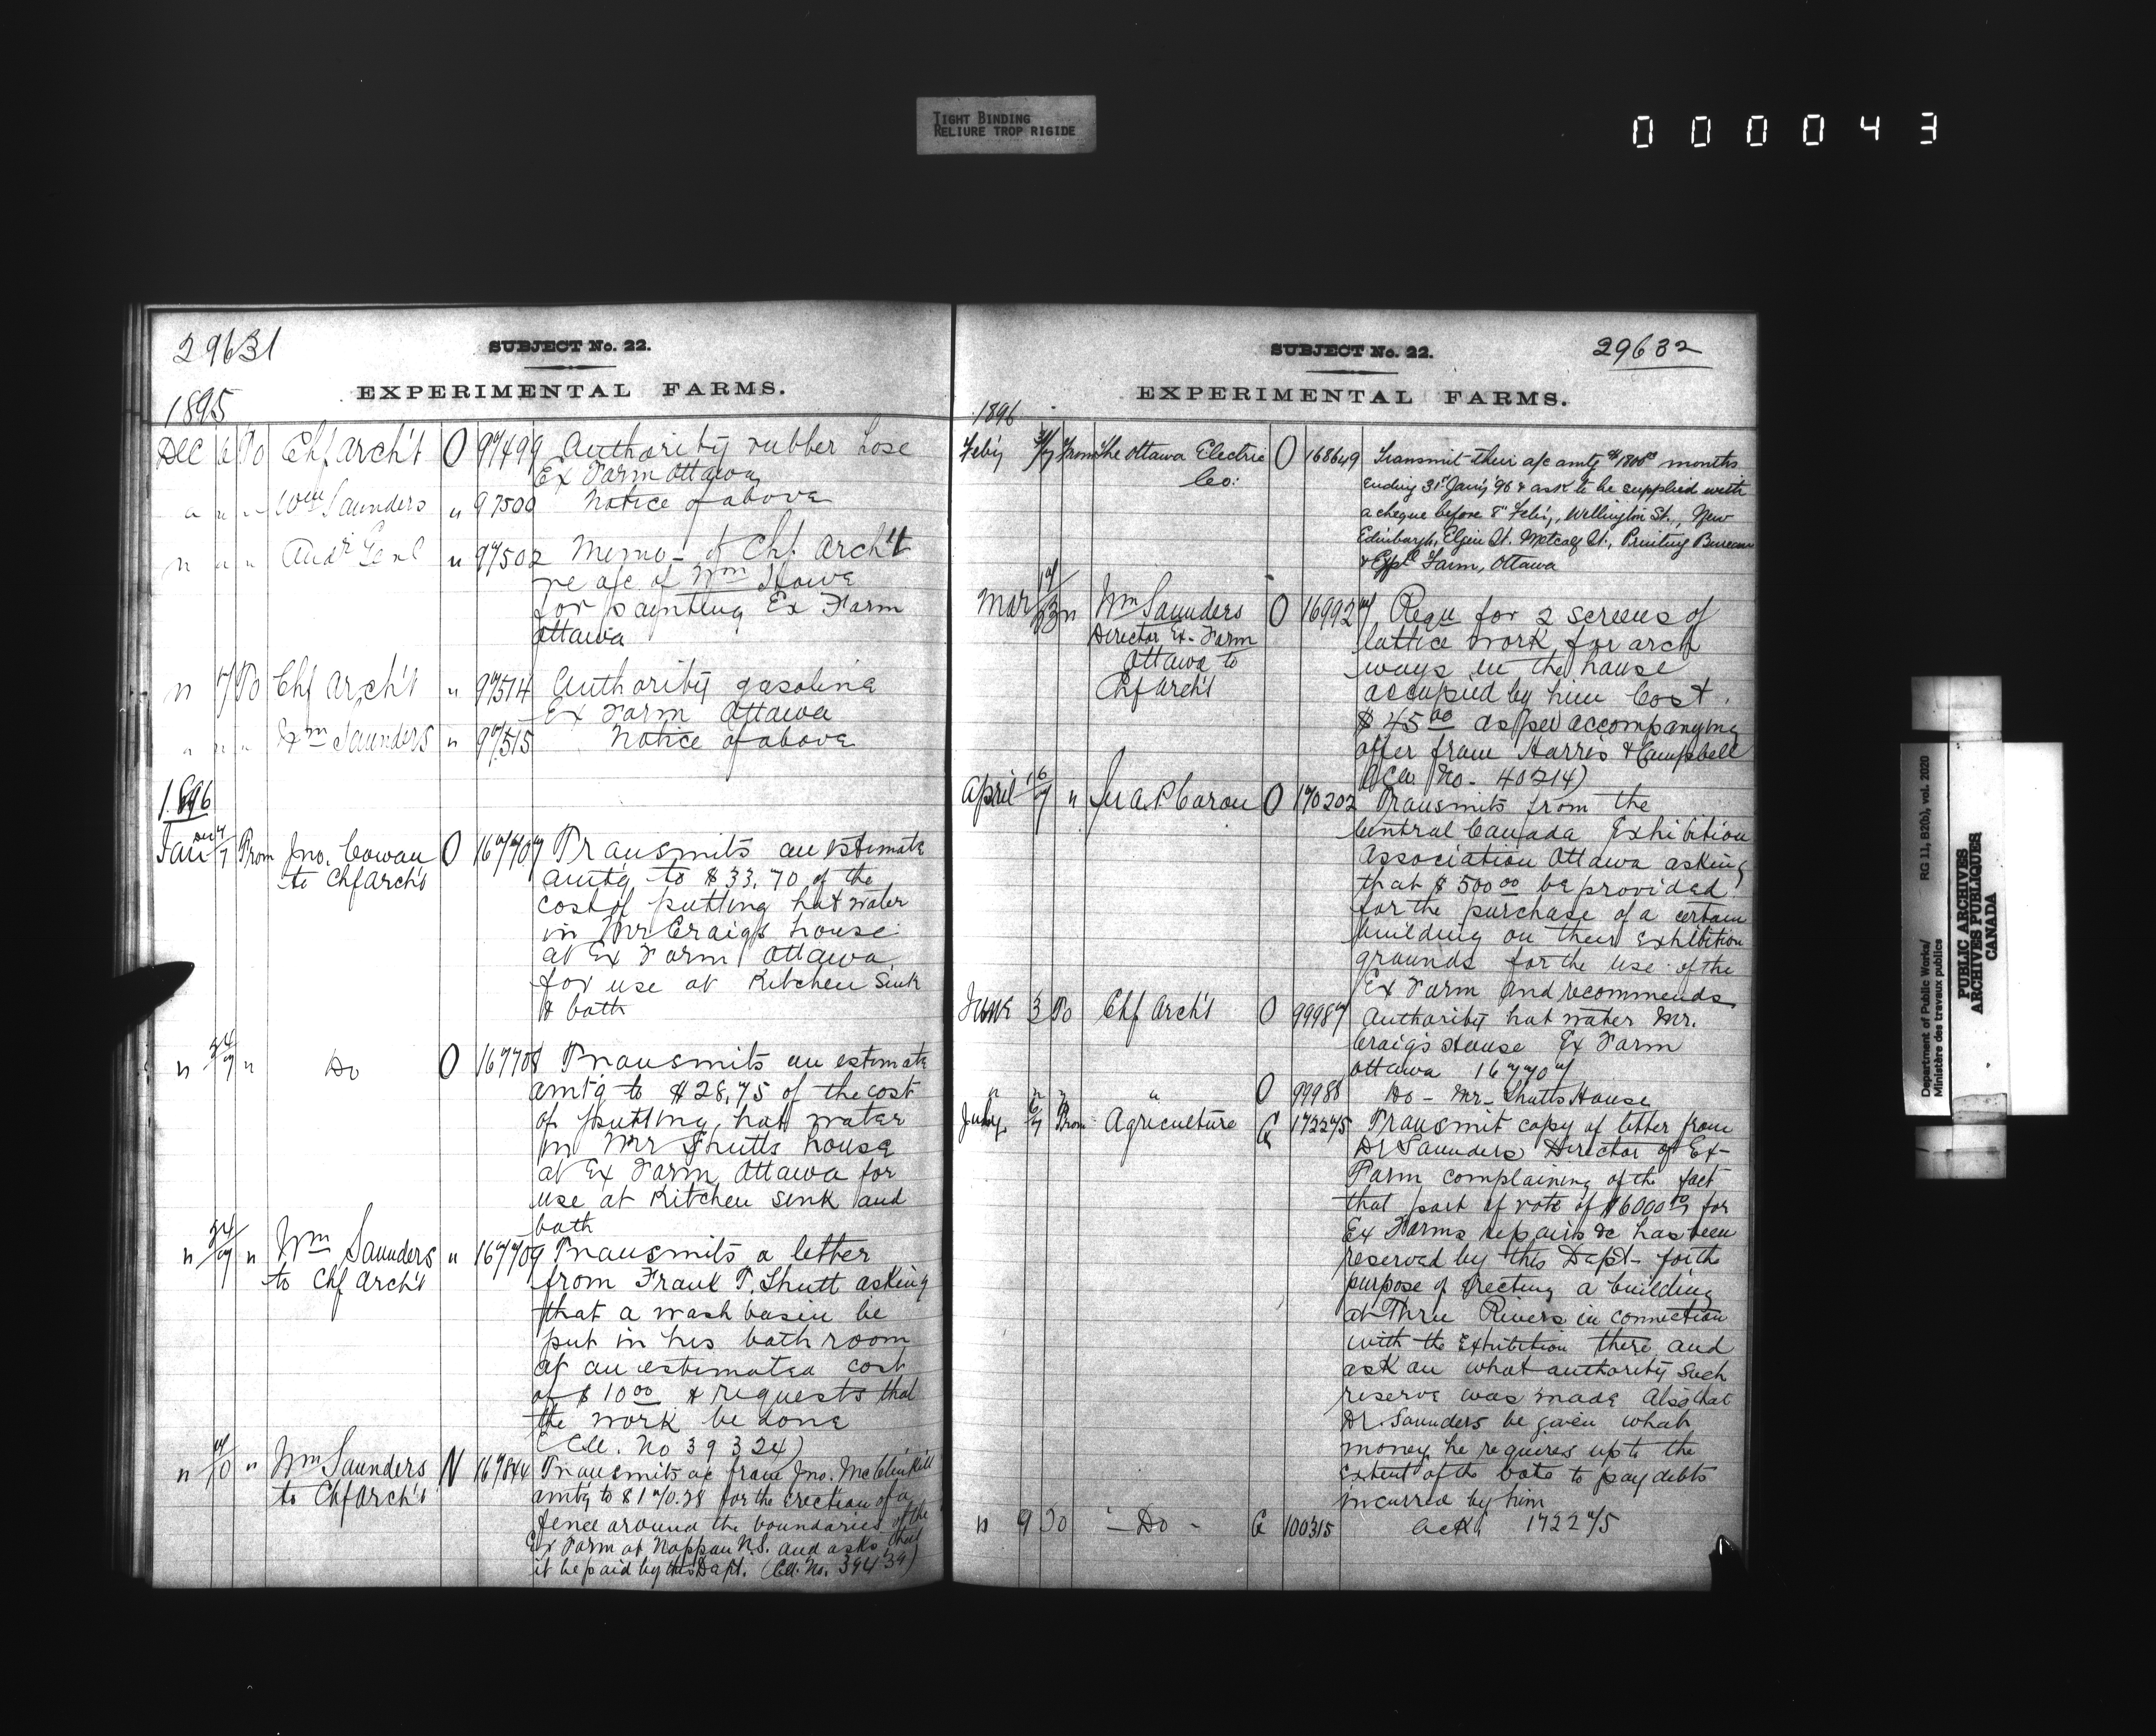 TIGHT BINDING
RELIURE TROP RIGIDE
000043
29631
SUBJECT No. 22.
EXPERIMENTAL FARMS.
1895
Dec 6 To Chf Arch't O 97499 Authority rubber hose
Ex Farm Ottawa
" " " Wm Saunders " 97500 Notice of above
" " " Audr Genl " 97502 Memo - of Chf Arch't
re a/c of Wm Howe
for painting Ex Farm
Ottawa
" 7 To Chf Arch't " 97514 Authority gasoline
Ex Farm Ottawa
" " " Wm Saunders " 97515 Notice of above
1896
Jan 7 From Jno. Cowan O 167707 Transmits an estimate
to Chf Arch't amtg to $33.70 of the
cost of putting hot water
in Mr Craigs house
at Ex Farm Ottawa
for use at Kitchen Sink
& bath
" 24/7 " Do O 167708 Transmits an estimate
amtg to $28.75 of the cost
of putting hot water
in Mr Shutts house
at Ex Farm Ottawa for
use at Kitchen sink and
bath
" 24/7 " Wm Saunders " 167709 Transmits a letter
to Chf Arch't from Frank T. Shutt asking
that a wash basin be
put in his bath room
at an estimated cost
of $10.00 & requests that
the work be done
(C.A. No 39324)
" 7/10 " Wm Saunders N 167844 Transmits a/c from Jno.
to Chf Arch't amtg to $170.28 for the erection of a
fence around the boundaries of the
Ex Farm at Nappan N.S. and asks that
it be paid by this Dept. (C.A. No. 39439)
29632
SUBJECT No. 22.
EXPERIMENTAL FARMS.
1896
Feb'y From The Ottawa Electric O 168649 Transmit their a/c amtg $1800 months
Co: ending 31st Jan'y 96 & ask to be supplied with
a cheque before 8th Feb'y, Wellington St., New
Edinburgh, Elgin St. Metcalf St., Printing Bureau
& Exptl Farm, Ottawa
Mar " Wm Saunders O 169927 Requ for 2 screens of
Director Ex. Farm lattice work for arch
Ottawa to ways in the house
Chf Arch't occupied by him Cost
$45.00 as per accompanying
offer from Harris & Campbell
(C.A. No. 40214)
April 16/7 " Sir A.P Caron O 170202 Transmits from the
Central Canada Exhibition
Association Ottawa asking
that $500.00 be provided
for the purchase of a certain
building on their exhibition
grounds for the use of the
Ex Farm and recommends
June 3 To Chf Arch't O 99987 Authority hot water Mr.
Craigs House Ex Farm
Ottawa 167707
" " " " O 99988 Do - Mr. Shutts House
July 6/7 From Agriculture G 172275 Transmit copy of letter from
Dr Saunders Director of Ex-
Farm complaining of the fact
that part of vote of $6000.00 for
Ex Farms repairs &c has been
reserved by this Dept- for the
purpose of erecting a building
at Three Rivers in connection
with the Exhibition there and
ask on what authority such
reserve was made Also that
Dr. Saunders be given what
money he requires up to the
extent of the vote to pay debts
incurred by him
" 9 To - Do - G 100315 Ack'g 172275
Department of Public Works/
Ministère des travaux publics
RG 11, B2(b), vol. 2020
PUBLIC ARCHIVES
ARCHIVES PUBLIQUES
CANADA